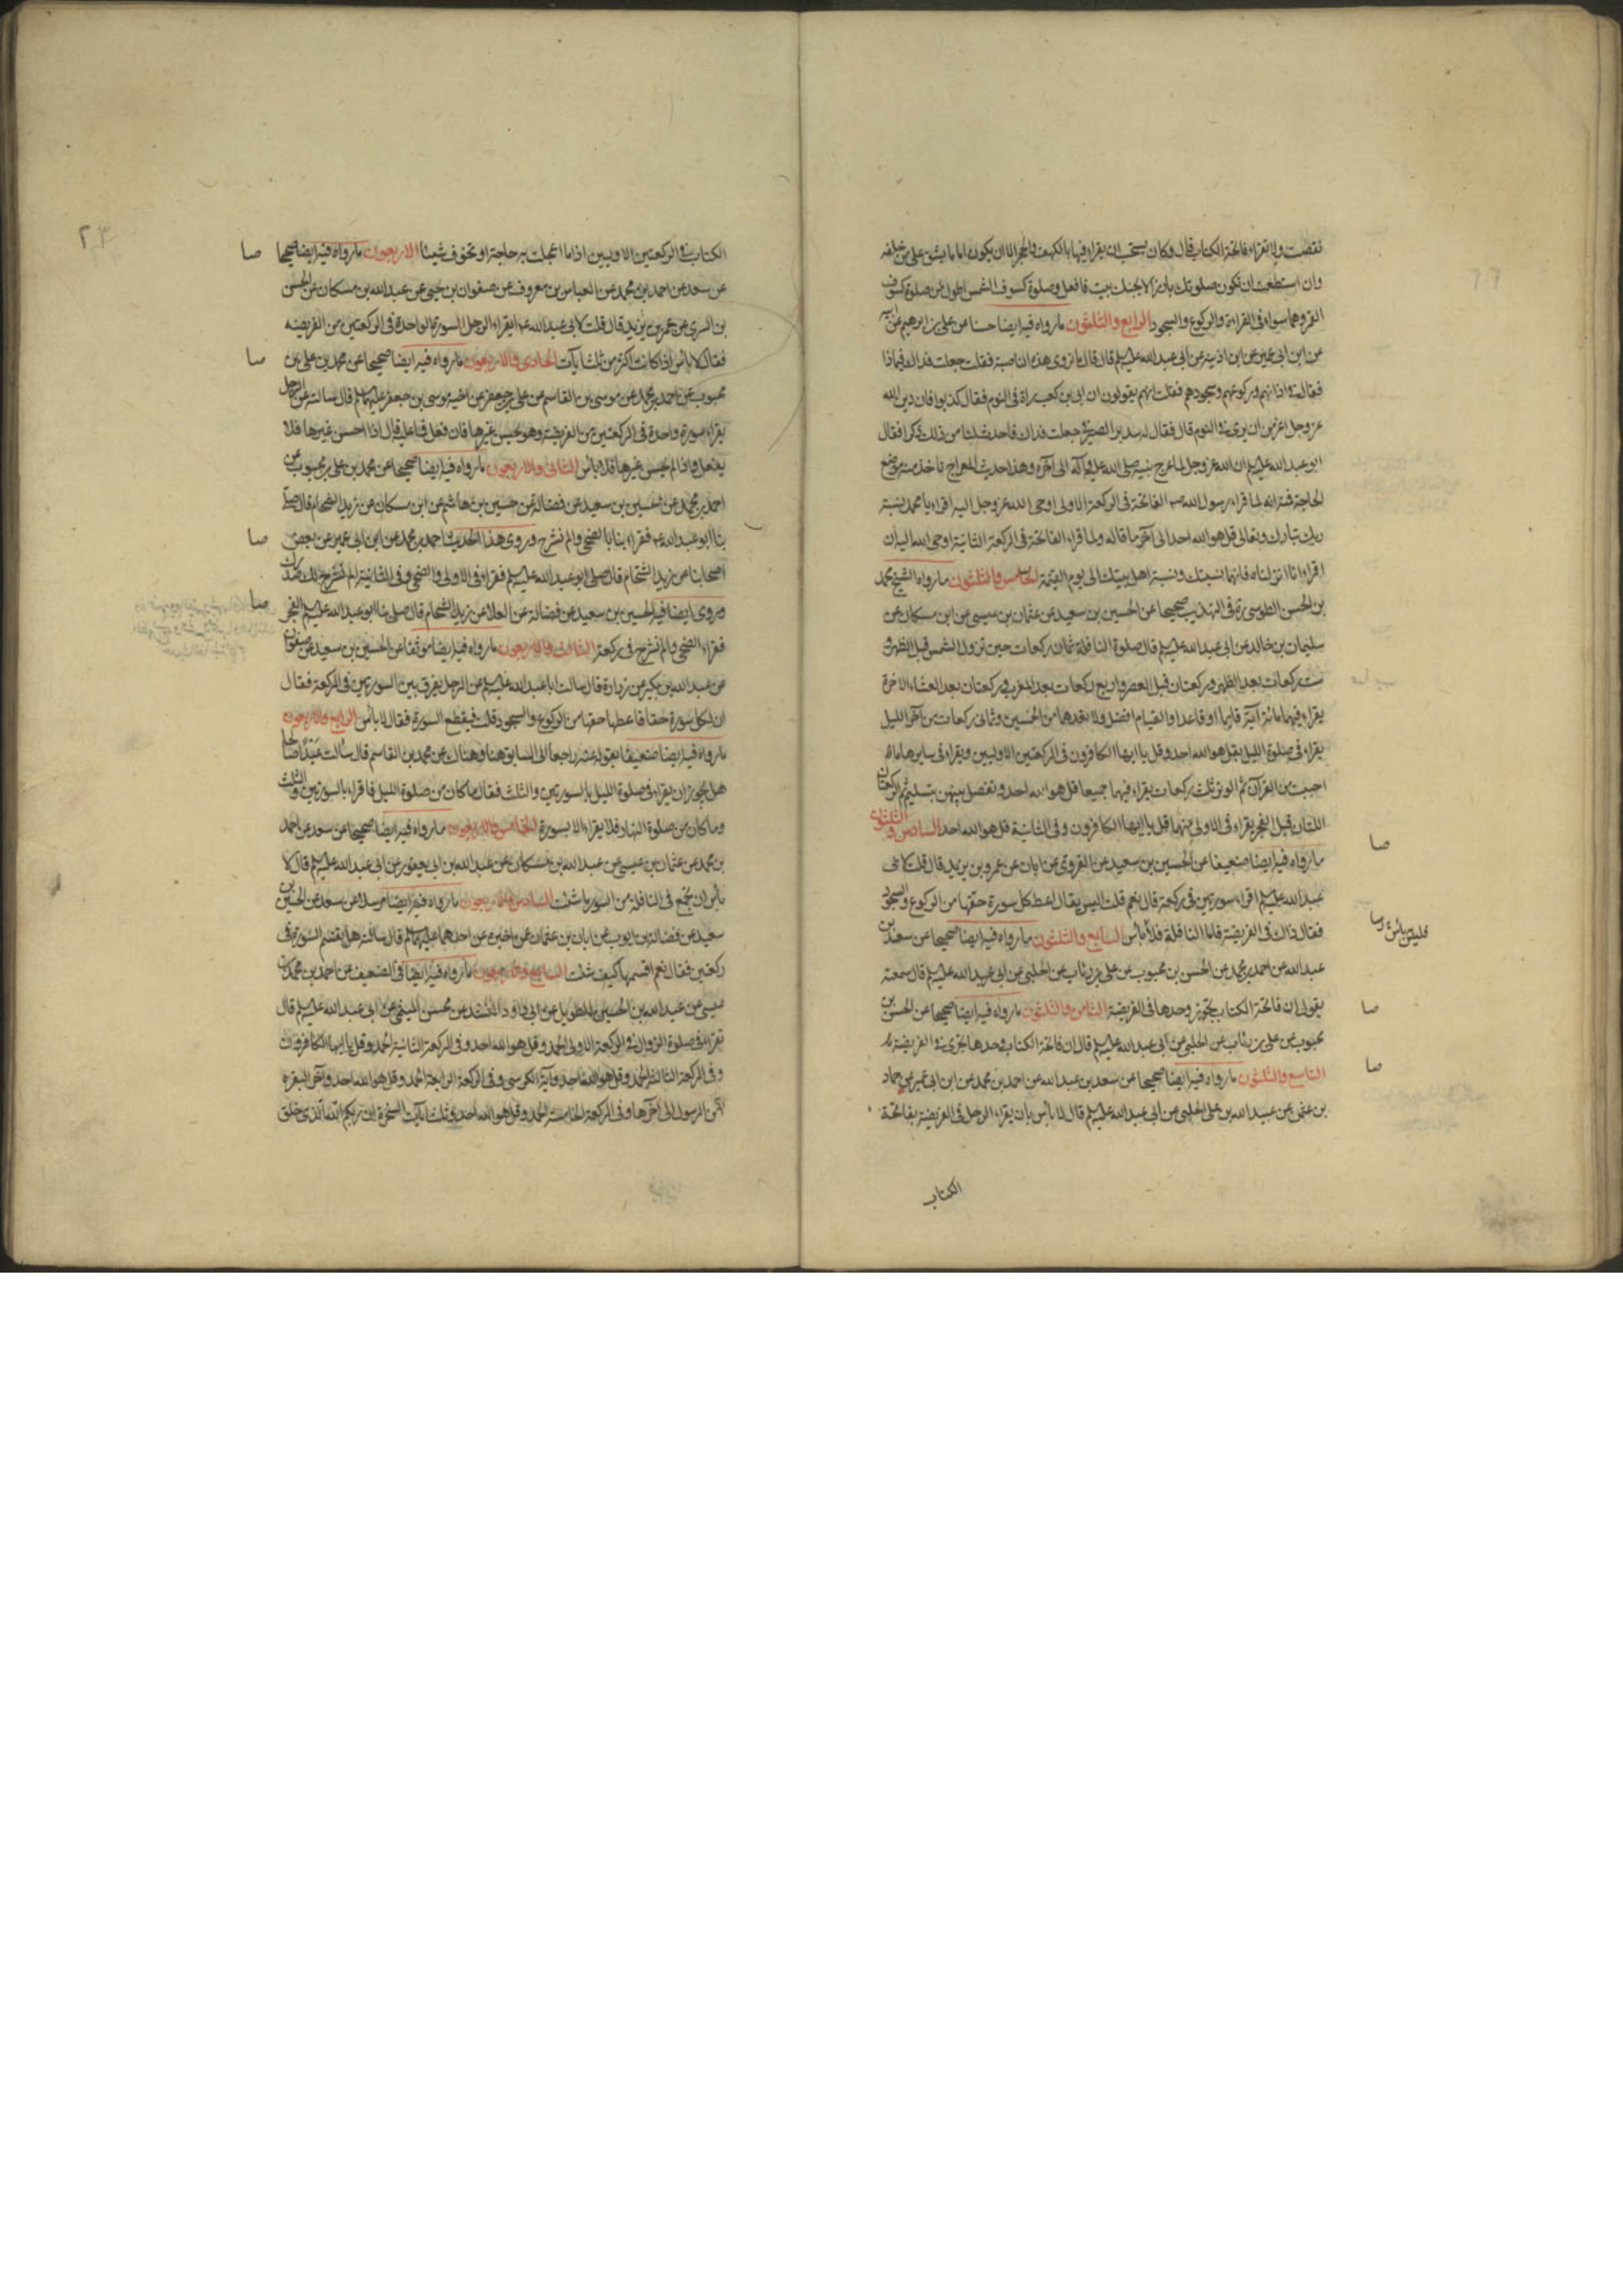 نقصت ولا تقراء فاتحة الكتاب قال وكان يستحب ان يقراء فيها بالكهف والحجر الا ان يكون اماما يشق على من خلفه
وان استطعت ان تكون صلوتك بارزا لا يجنك بيت فافعل وصلوة كسوف الشمس اطول من صلوة كسوف
القمر وهما سواء فى القراءة والركوع والسجود الرابع والثلثون ما رواه فيه ايضا حسنا عن على بن ابرهيم عن ابيه
عن ابن ابى عمير عن ابن اذينة عن ابى عبدالله عليه السلم قال قال ما تروى هذه الناصبة فقلت جعلت فداك فيماذا
فقال فى اذانهم وركوعهم وسجودهم فقلت انهم يقولون ان ابى بن كعب راه فى النوم فقال كذبوا فان دين الله
عز وجل اعز من ان يرى فى النوم قال فقال له سدير الصيرفى جعلت فداك فاحدث لنا من ذلك ذكرا فقال
ابو عبدالله عليه السلم ان الله عز وجل لما عرج بنبيه صلى الله عليه وآله الى آخره وهذا حديث المعراج ناخذ منه موضع
الحاجة فنه انه لما قراء رسول الله ص الفاتحة فى الركعة الاولى اوحى الله عز وجل اليه اقراء يا محمد نسبة
ربك تبارك وتعالى قل هو الله احد الى آخر ما قاله ولما قراء الفاتحة فى الركعة الثانية اوحى الله اليه ان
اقراء انا انزلناه فانها نسبتك ونسبة اهل بيتك الى يوم القيمة الخامس والثلثون ما رواه الشيخ محمد
بن الحسن الطوسى ره فى التهذيب صحيحا عن الحسين بن سعيد عن عثمان بن عيسى عن ابن مسكان عن
سليمان بن خالد عن ابى عبدالله عليه السلم قال صلوة النافلة ثمان ركعات حين تزول الشمس قبل الظهر و
ست ركعات بعد الظهر وركعتان قبل العصر واربع ركعات بعد المغرب وركعتان بعد العشاء الاخرة
يقراء فيهما مائة آية قايما او قاعدا والقيام افضل ولا تعدهما من الخمسين وثمانى ركعات من آخر الليل
يقراء فى صلوة الليل بقل هو الله احد وقل يا ايها الكافرون فى الركعتين الاوليين ويقراء فى سايرها ما
احببت من القرآن ثم الوتر ثلث ركعات يقراء فيها جميعا قل هو الله احد وتفصل بينهن بتسليم ثم الركعتان
اللتان قبل الفجر يقراء فى الاولى منهما قل يا ايها الكافرون وفى الثانية قل هو الله احد السادس والثلثون
ما رواه فيه ايضا ضعيفا عن الحسين بن سعيد عن القروى عن ابان عن عمر بن يزيد قال قلت لابى
عبدالله عليه السلم اقراء سورتين فى ركعة قال نعم قلت اليس يقال اعط كل سورة حقها من الركوع والسجود
فقال ذاك فى الفريضة فاما النافلة فلا باس السابع والثلثون ما رواه فيه ايضا صحيحا عن سعد بن
عبدالله عن احمد بن محمد عن الحسن بن محبوب عن على بن رئاب عن الحلبى عن ابى عبدالله عليه السلم قال سمعته
يقول ان فاتحة الكتاب تجوز وحدها فى الفريضة الثامن والثلثون ما رواه فيه ايضا صحيحا عن الحسن بن
محبوب عن على بن رئاب عن الحلبى عن ابى عبدالله عليه السلم قال ان فاتحة الكتاب وحدها تجزى فى الفريضة
التاسع والثلثون ما رواه فيه ايضا صحيحا عن سعد بن عبدالله عن احمد بن محمد عن ابن ابى عمير عن حماد
بن عثمن عن عبيدالله بن على الحلبى عن ابى عبدالله عليه السلم قال لا باس بان يقراء الرجل فى الفريضة بفاتحة
الكتاب
صا
صا
صا
صا
الكتاب فى الركعتين الاوليين اذا ما اعجلت به حاجة او تخوف شيئا الاربعون ما رواه فيه ايضا صحيحا
عن سعد عن احمد بن محمد عن العباس بن معروف عن صفوان بن يحيى عن عبدالله بن مسكان عن الحسن
بن السرى عن عمر بن يزيد قال قلت لابى عبدالله ع ايقراء الرجل السورة الواحدة فى الركعتين من الفريضة
فقال لا باس اذا كانت اكثر من ثلث آيات الحادى والاربعون ما رواه فيه ايضا صحيحا عن محمد بن على بن
محبوب عن احمد بن محمد عن موسى بن القاسم عن على بن جعفر عن اخيه موسى بن جعفر عليهما السلم قال سالته عن الرجل
يقراء سورة واحدة فى الركعتين من الفريضة وهو يحسن غيرها فان فعل فما عليه قال اذا احسن غيرها فلا
يفعل واذا لم يحسن غيرها فلا باس الثانى والاربعون ما رواه فيه ايضا صحيحا عن محمد بن على بن محبوب عن
احمد بن محمد عن الحسين بن سعيد عن فضالة عن حسين بن هاشم عن ابن مسكان عن زيد الشحام قال صلى
بنا ابو عبدالله ع فقراء بنا بالضحى والم نشرح وروى هذا الحديث احمد بن محمد عن ابن ابى عمير عن بعض
اصحابنا عن زيد الشحام قال صلى ابو عبدالله عليه السلم فقراء فى الاولى والضحى وفى الثانية الم نشرح لك صدرك
وروى ايضا فيه الحسين بن سعيد عن فضالة عن العلا عن زيد الشحام قال صلى بنا ابو عبدالله عليه السلم الفجر
فقراء الضحى والم نشرح فى ركعة الثالث والاربعون ما رواه فيه ايضا موثقا عن الحسين بن سعيد عن صفوان
عن عبدالله بن بكير عن زرارة قال سالت ابا عبدالله عليه السلم عن الرجل يقرن بين السورتين فى الركعة فقال
ان لكل سورة حقا فاعطها حقها من الركوع والسجود قلت فيقطع السورة فقال لا باس الرابع والاربعون
ما رواه فيه ايضا ضعيفا بقوله عنه راجعا الى السابق هنا وهناك عن محمد بن القاسم قال سألت عبدا صالحا
هل يجوز ان يقراء فى صلوة الليل بالسورتين والثلث فقال ما كان من صلوة الليل فاقراء بالسورتين والثلث
وما كان من صلوة النهار فلا يقراء الا بسورة الخامس والاربعون ما رواه فيه ايضا صحيحا عن سعد عن احمد
بن محمد عن عثمان بن عيسى عن عبدالله بن مسكان عن عبدالله بن ابى يعفور عن ابى عبدالله عليه السلم قال لا
باس ان تجمع فى النافلة من السور ما شئت السادس والاربعون ما رواه فيه ايضا مرسلا عن سعد عن الحسين بن
سعيد عن فضالة بن ايوب عن ابان بن عثمان عن اخبره عن احدهما عليهما السلم قال سالته هل تقسم السورة فى
ركعتين فقال نعم اقسمها كيف شئت السابع والاربعون ما رواه فيه ايضا فى الضعيف عن احمد بن محمد بن
عيسى عن عبدالله بن الحسين الطويل عن ابى داود المنشد عن محسن الميثمى عن ابى عبدالله عليه السلم قال
تقراء فى صلوة الزوال فى الركعة الاولى الحمد وقل هو الله احد وفى الركعة الثانية الحمد وقل يا ايها الكافرون
وفى الركعة الثالثة الحمد وقل هو الله احد وآية الكرسى وفى الركعة الرابعة الحمد وقل هو الله احد وآخر البقره
آمن الرسول الى آخرها وفى الركعة الخامسة الحمد وقل هو الله احد وثلث آيات السخرة ان ربكم الله الذى خلق
صا
صا
صا
صا